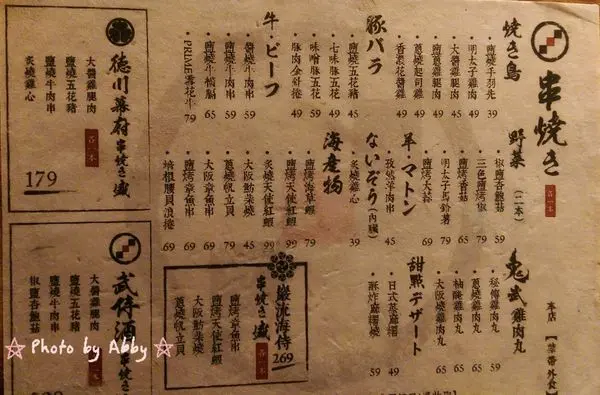 串焼き
各一本
焼き鳥
鹽燒手羽先 39
明太子雞肉 49
大醬雞腿肉 49
鹽蔥雞腿肉 49
蔥燒起司雞 49
香濃花醬雞 49
豚バラ
鹽燒五花豬 45
七味豚五花 49
味噌豚五花 59
豚肉金針捲 49
牛・ビーフ
醬燒牛肉串 59
鹽燒牛肉串 59
鹽烤牛横膈 65
PRIME霜花牛 79
野菜
(二本)
椒鹽杏鮑菇 59
三色鹽烤椒 59
鹽烤香菇 65
明太子馬鈴薯 79
鹽烤大菇 69
羊・マトン
孜然羊肉串 45
ないぞう(内臓)
炙燒雞心 39
海産物
鹽烤海草蝦 79
鹽烤天使紅蝦 99
炙燒天使紅蝦 99
大阪魴朱燒 45
蔥燒帆立貝 79
大阪章魚串 69
鹽烤章魚串 69
培根腰貝浪捲 69
鬼武雞肉丸
秘傳雞肉丸 55
蔥燒雞肉丸 65
柚醃雞肉丸 65
大阪燒雞肉丸 65
甜點デザート
日式蕨麻糬 49
酥炸麻糬 59
本店【禁帶外食】
德川幕府
串焼き盛
各一本
大醬雞腿肉
鹽燒五花豬
鹽燒牛肉串
炙燒雞心
179
武侍酒
串焼き
大醬雞腿肉
鹽燒五花豬
鹽燒牛肉串
椒鹽杏鮑菇
巖流海侍
串焼き盛
各一本
269
鹽烤章魚串
鹽烤天使紅蝦
大阪魴朱燒
蔥燒帆立貝
Photo by Abby